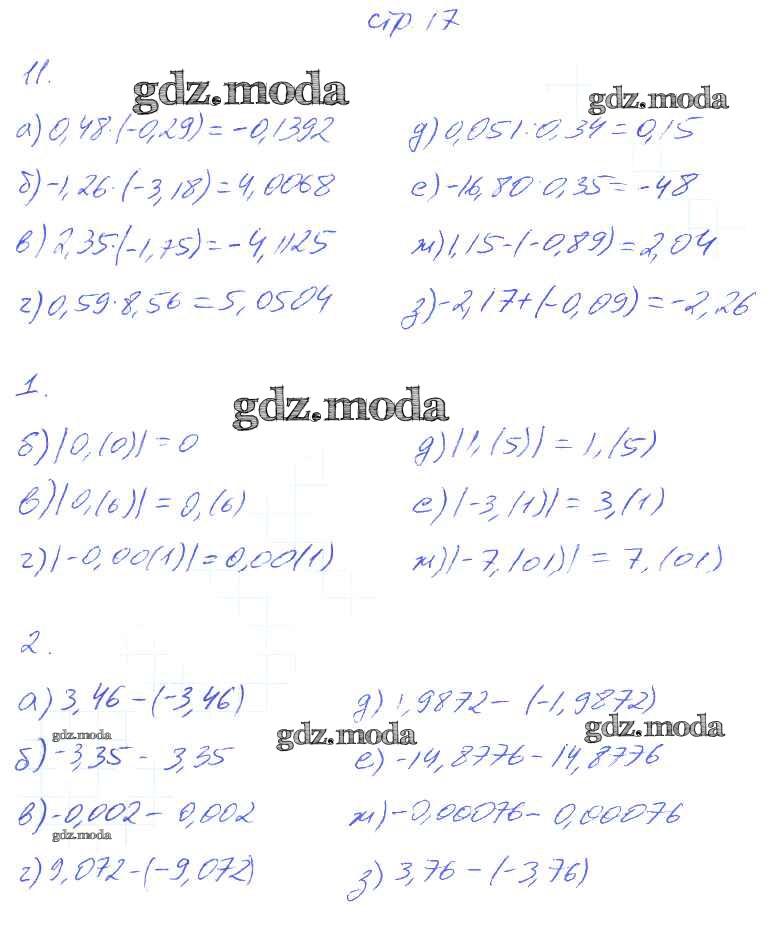 стр 17
11.
gdz.moda
gdz.moda
а) 0,48·(-0,29) = -0,1392
д) 0,051:0,34 = 0,15
б) -1,26·(-3,18) = 4,0068
е) -16,80:0,35 = -48
в) 2,35·(-1,75) = -4,1125
ж) 1,15-(-0,89) = 2,04
г) 0,59·8,56 = 5,0504
з) -2,17+(-0,09) = -2,26
1.
gdz.moda
б) |0,(0)| = 0
д) |1,(5)| = 1,(5)
в) |0,(6)| = 0,(6)
е) |-3,(1)| = 3,(1)
г) |-0,00(1)| = 0,00(1)
ж) |-7,(01)| = 7,(01)
2.
а) 3,46 - (-3,46)
д) 1,9872 - (-1,9872)
gdz.moda
gdz.moda
gdz.moda
б) -3,35 - 3,35
е) -14,8776 - 14,8776
в) -0,002 - 0,002
ж) -0,00076 - 0,00076
gdz.moda
г) 9,072 - (-9,072)
з) 3,76 - (-3,76)